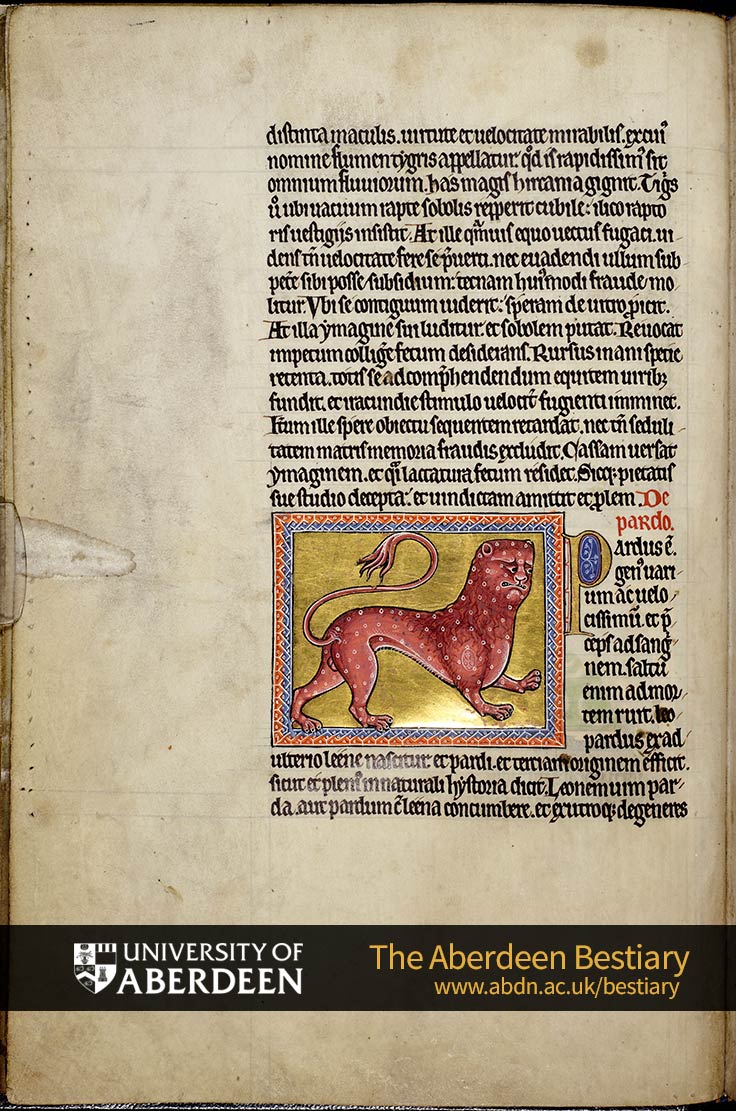 distincta maculis. uirtute et uelocitate mirabilis. ex cui᾽
nomine flumen tygris appellatur. qd̕ is rapidissim᾽ sit
omnium fluuiorum. has magis hircania gignit. Tig᾽s
ů ubi uacuum rapte sobolis reꝑperit cubile: ilico rapto
ris uestigiis insistit. At ille qͣmuis equo uectus fugaci. ui
dens tn̄ uelocitate fere se p̄uerti. nec euadendi ullum sub
petẽ sibi posse subsidium: tecnam hui᾽modi fraude mo
litur. Vbi se contiguum uiderit: speram de uitro ꝓicit.
At illa ymagine sui luditur. et sobolem putat. Reuocat
impetum colligẽ fetum desiderans. Rursus inani specie
retenta. totis se ad comp̄hendendum equitem uiribꝫ
fundit. et iracundie stimulo uelocit̄ fugienti imminet.
Itͥum ille spere obiectu sequentem retardat. nec tn̄ seduli
tatem matris memoria fraudis excludit. Cassam uersat
ymaginem. et qͣi lactatura fetum residet. Sicqꝫ pietatis
sue studio decepta: et uindictam amittit et ꝓlem. De
pardo.
Pardus ē.
gen᾽ uari
um ac uelo
cissimū. et p̄
ceps ad sang᾽
nem. saltu
enim ad mor
tem ruit. leo
pardus ex ad
ulterio leene nascitur et pardi. et terciam originem efficit.
sicut et plenı᾽ in naturali hystoria dicit. Leonem cum par
da. aut pardum c̄ leena concumbere. et ex utroqꝫ degeneres
UNIVERSITY OF
ABERDEEN
The Aberdeen Bestiary
www.abdn.ac.uk/bestiary